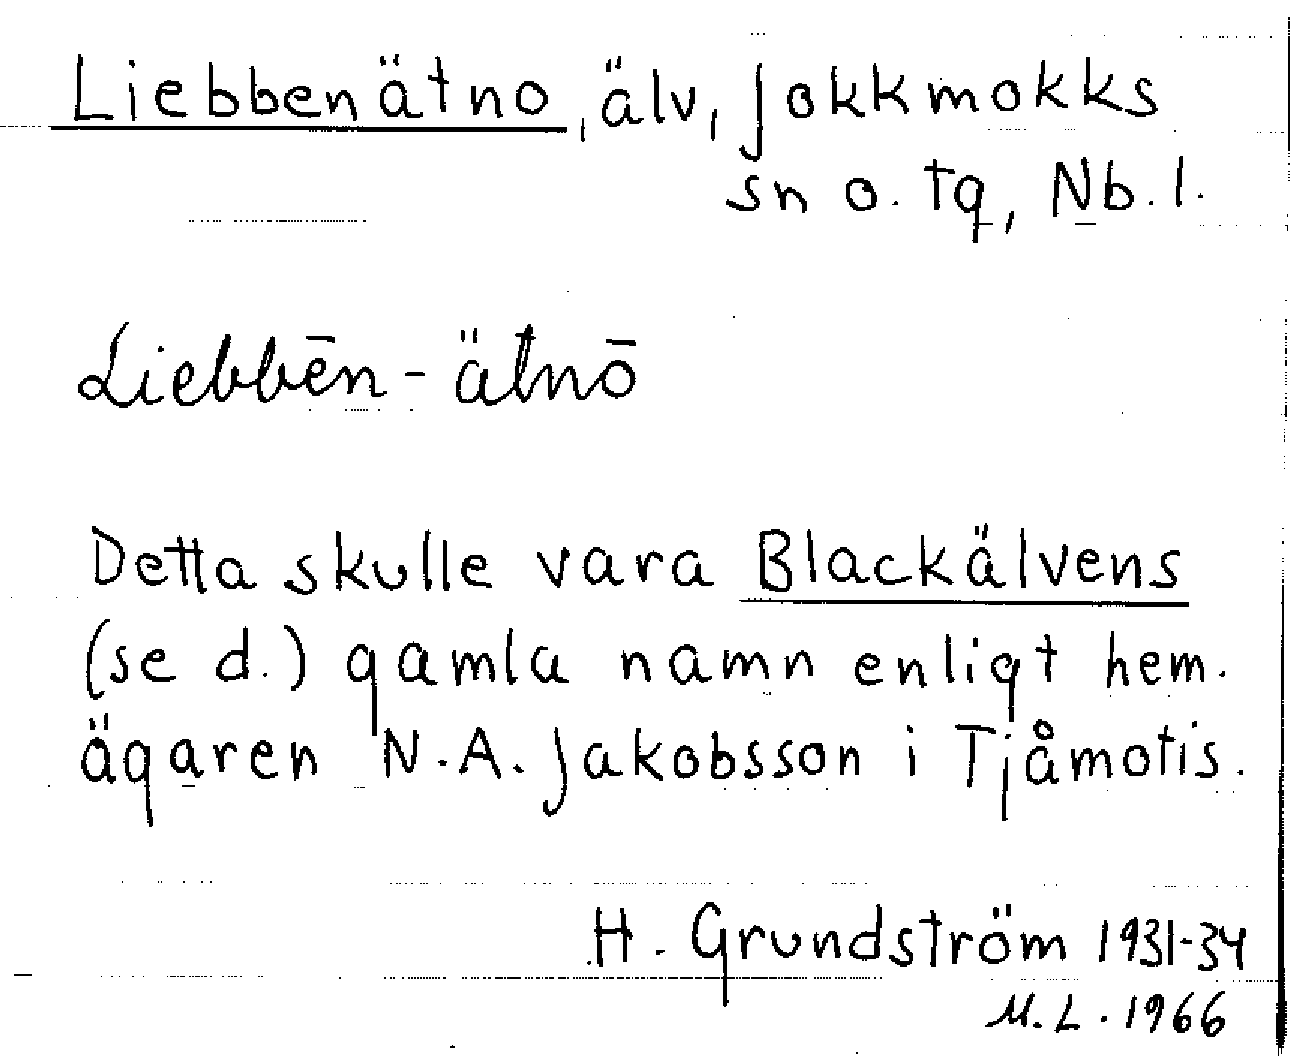 Liebbenätno, älv, Jokkmokks
sn o. tg, Nb. l.
Liebbēn-ätnō
Detta skulle vara Blackälvens
(se d.) gamla namn enligt hem.
ägaren N.A. Jakobsson i Tjåmotis.
H. Grundström 1931-34
M.L. 1966